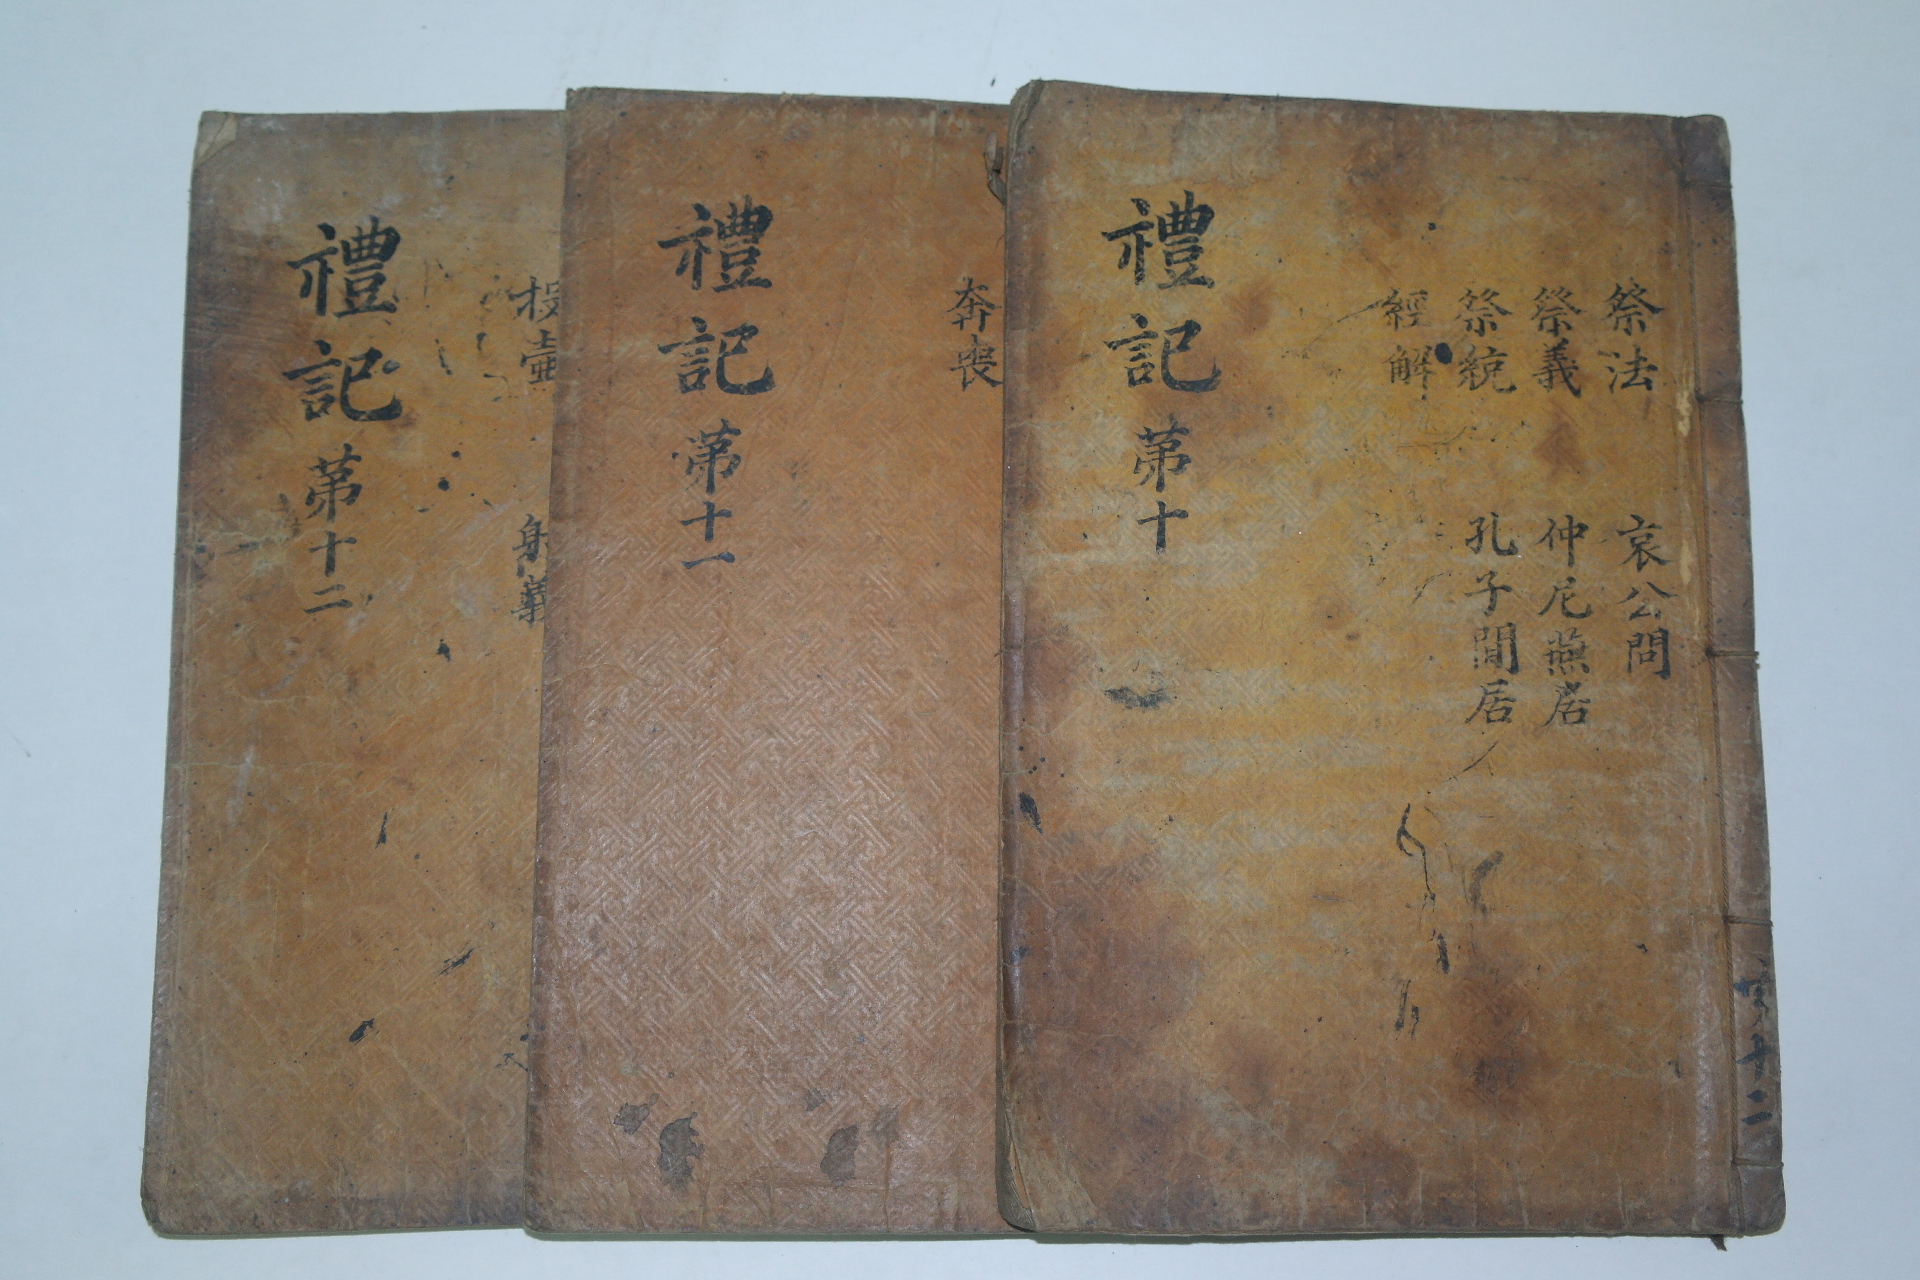 祭法
祭義
祭統
經解
哀公問
仲尼燕居
孔子閒居
禮記
第十
奔喪
禮記
第十一
投壺
射義
禮記
第十二